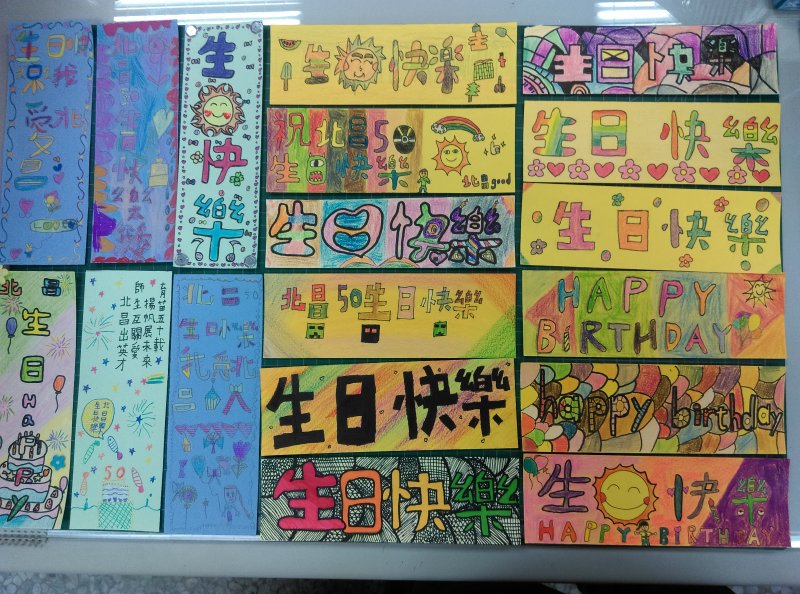 北昌50生日快樂
生快樂
生快樂
祝北昌50
生日快樂
北昌good
生日快樂
北昌50生日快樂
生日快樂
生日快樂
生日快樂
生日快樂
生日快樂
HAPPY
BIRTHDAY
happy birthday
生快樂
HAPPY BIRTHDAY
北昌
生日HAPPY
育苗五十載
揚帆展未來
師生互關愛
北昌出英才
50
北昌50